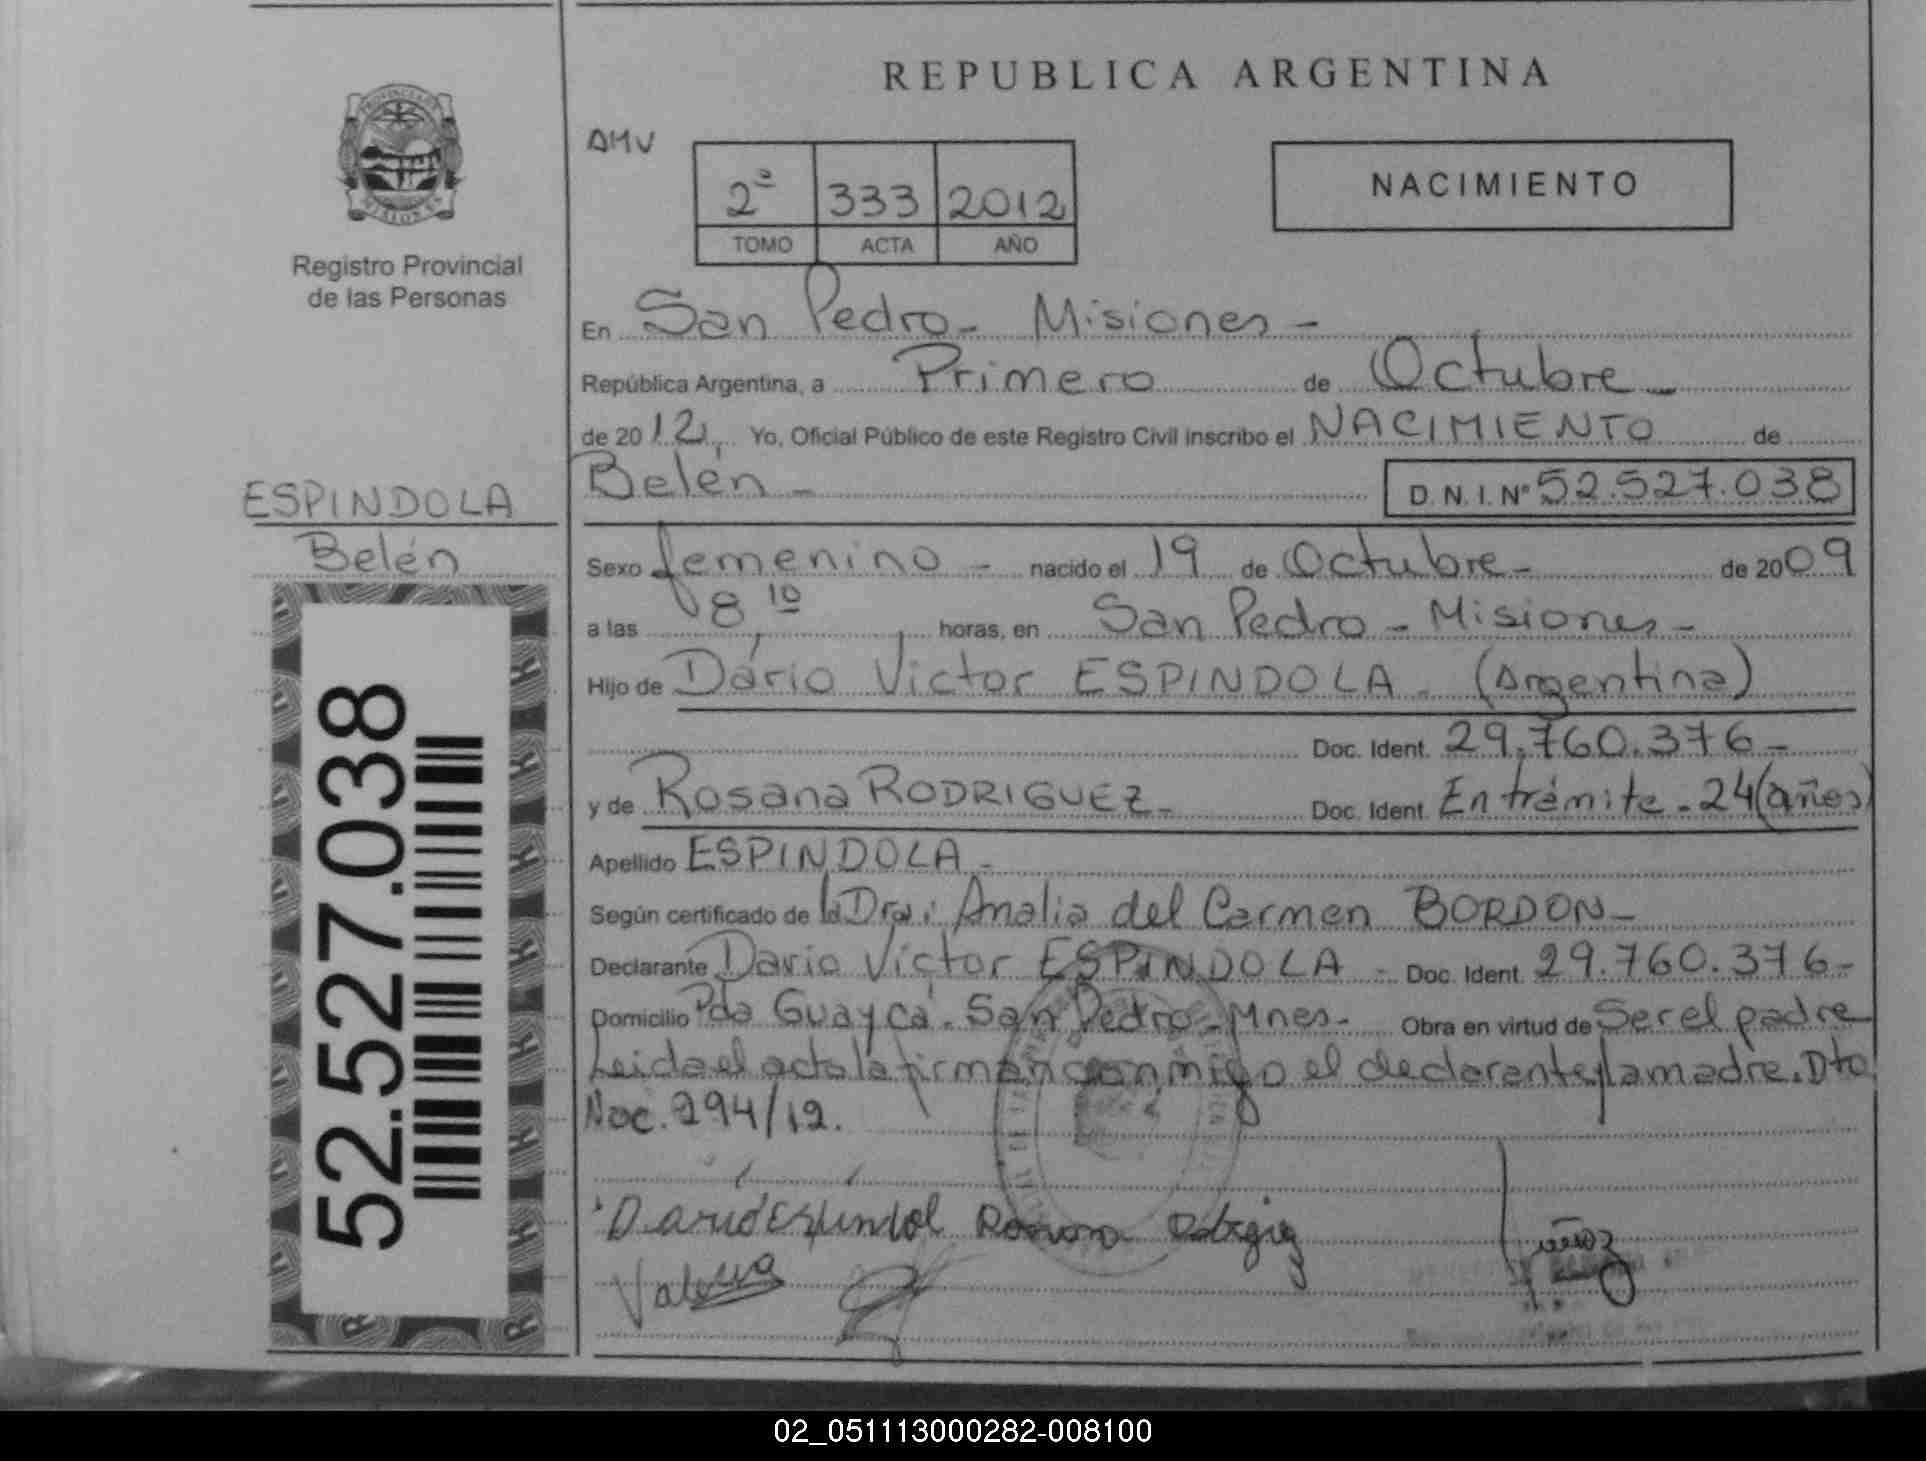 REPUBLICA ARGENTINA
PROVINCIA DE
MISIONES
Registro Provincial
de las Personas
AMV
2ª 333 2012
TOMO ACTA AÑO
NACIMIENTO
En San Pedro - Misiones -
República Argentina, a Primero de Octubre -
de 2012, Yo, Oficial Público de este Registro Civil inscribo el NACIMIENTO de
Belén - D. N. I. Nº 52.527.038
ESPINDOLA
Belén
52.527.038
Sexo femenino - nacido el 19 de Octubre - de 2009
a las 8,10 horas, en San Pedro - Misiones -
Hijo de Dário Victor ESPINDOLA - (Argentina)
Doc. Ident. 29.760.376 -
y de Rosana RODRIGUEZ - Doc. Ident. En trámite - 24 (años)
Apellido ESPINDOLA -
Según certificado de la Dra: Analia del Carmen BORDON -
Declarante Dario Victor ESPINDOLA - Doc. Ident. 29.760.376 -
Domicilio Pda Guaycá. San Pedro - Mnes - Obra en virtud de Ser el padre
Leida el acta la firman conmigo el declarante y la madre. Dto
Nac. 294/12.
02_051113000282-008100